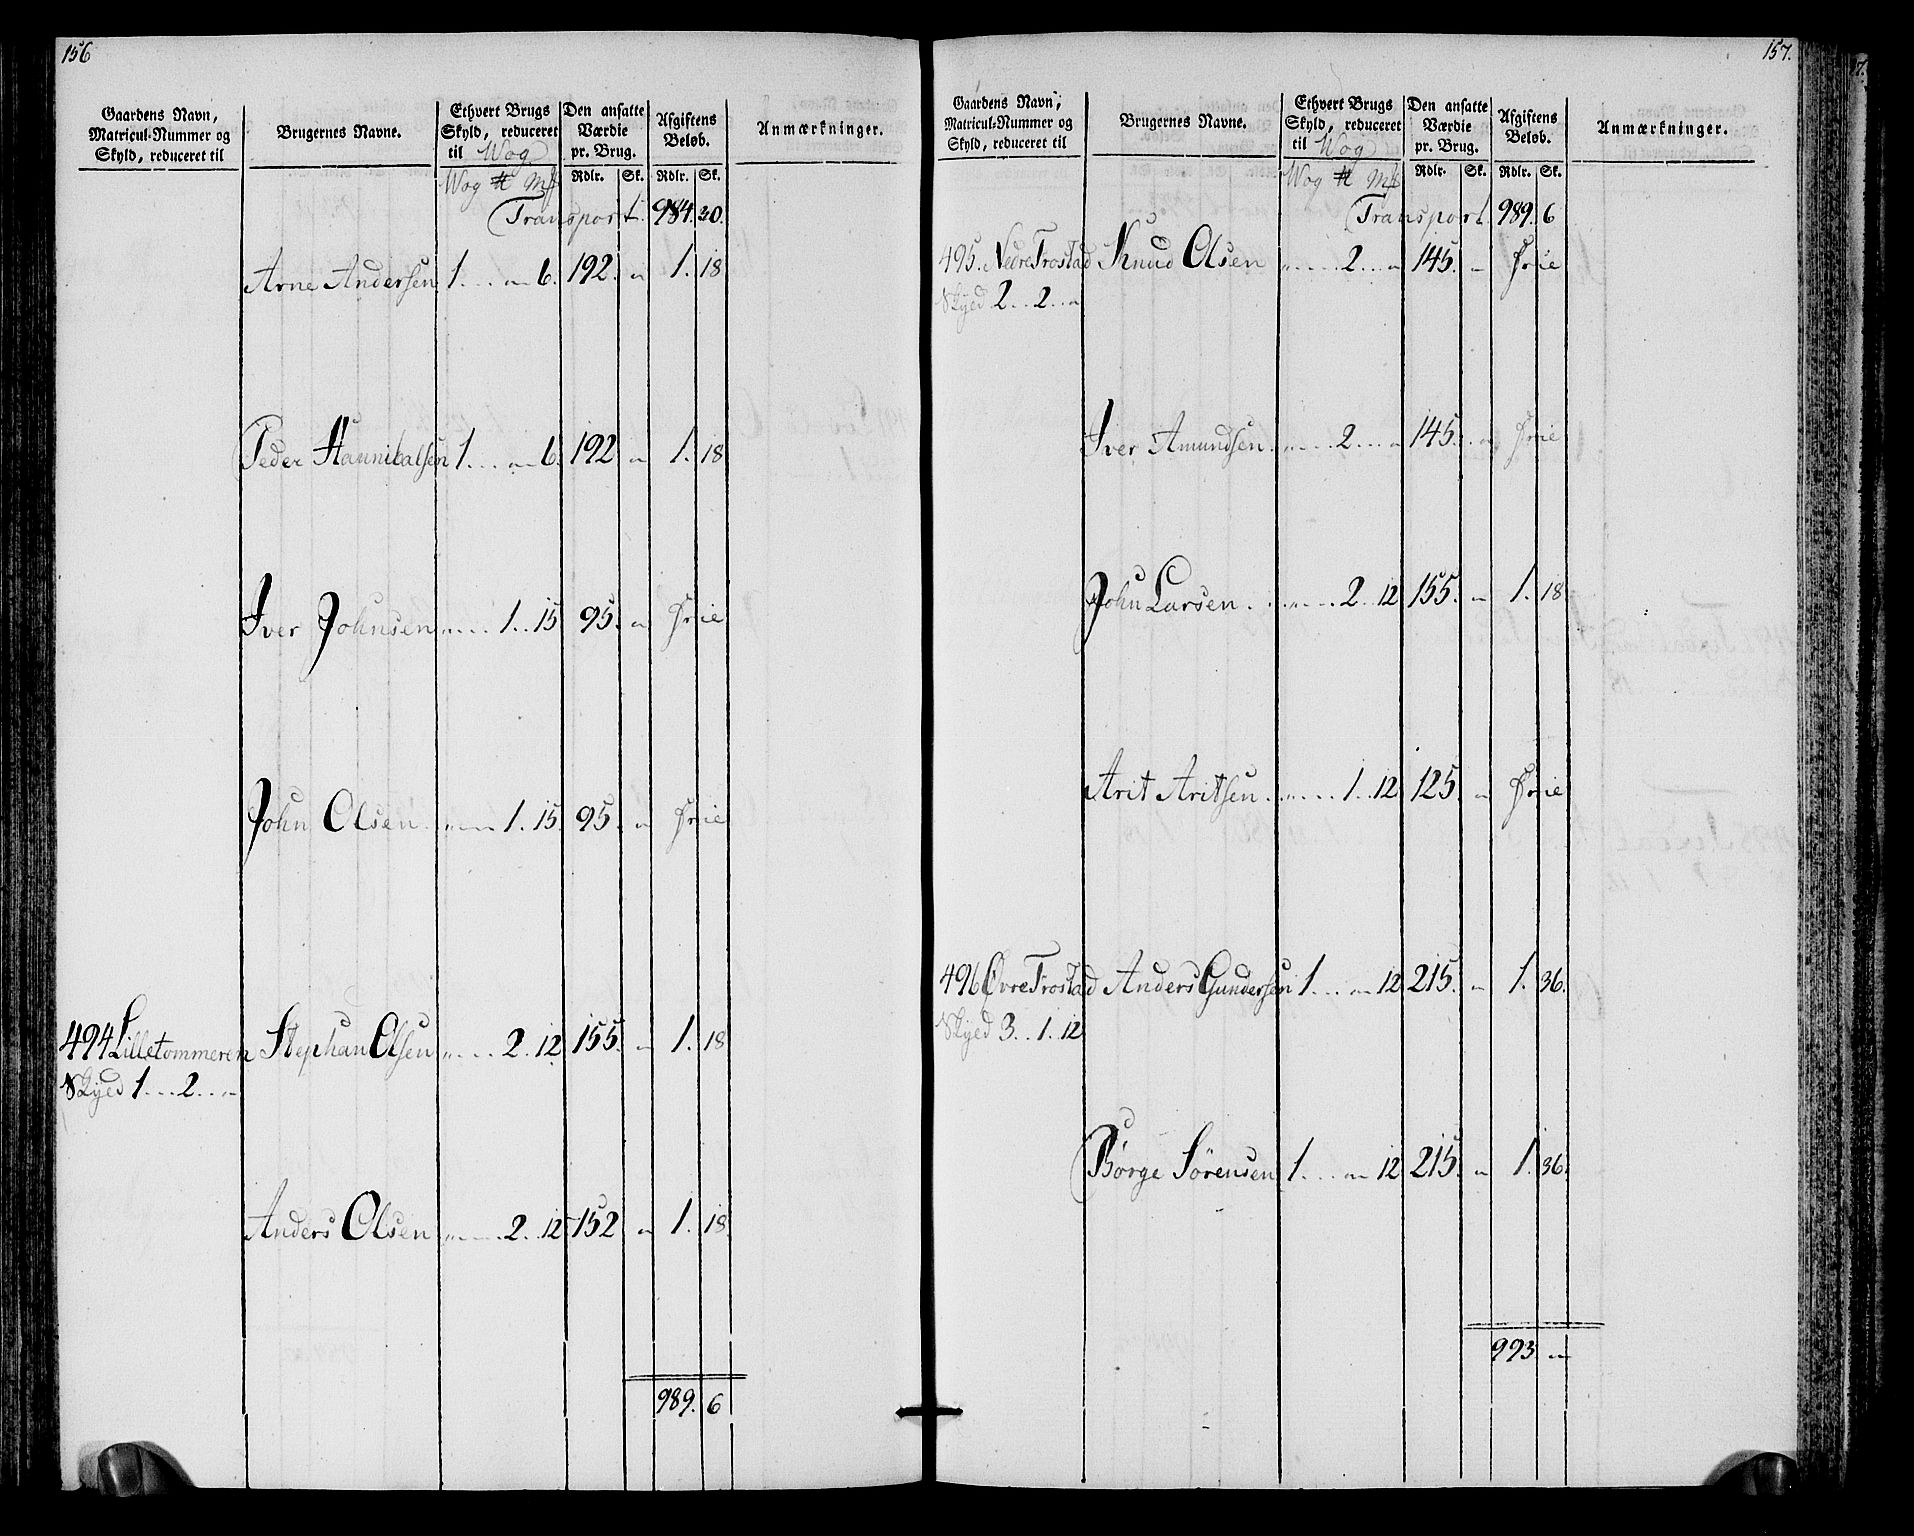 156
Gaardens Navn, Matricul-Nummer og Skyld, reduceret til | Brugernes Navne. | Ethvert Brugs Skyld, reduceret til Wog | Den ansatte Værdie pr. Brug. | Afgiftens Beløb. | Anmærkninger.
Wog ℔ Mk | Rdlr. Sk. | Rdlr. Sk.
Transport. 984. 30.
Arne Andersen 1 . . . „ 6. 192. „ 1. 18
Peder Hannibalsen 1 . . . „ 6. 192 „ 1. 18
Iver Johnsen „ . . . 1 . . 15 95. „ Frie
John Olsen. „ 1. 15. 95. „ Frie
494 Lilletommeren Stephan Olsen „ . . . 2. 12. 155. „ 1. 18
Skyed 1 . . . 2 . . „
Anders Olsen „ . . . 2 . . 12 152 „ 1. 18.
989. 6
157.
Gaardens Navn, Matricul-Nummer og Skyld, reduceret til | Brugernes Navne. | Ethvert Brugs Skyld, reduceret til Wog | Den ansatte Værdie pr. Brug. | Afgiftens Beløb. | Anmærkninger.
Wog ℔ Mk | Rdlr. Sk. | Rdlr. Sk.
Transport 989. 6
495. Nedre Trostad Knud Olsen „ . . . 2 . . „ 145. „ Frie
Skyed 2 . . 2 . . „
Iver Amundsen. „ . . . 2 . . „ 145. „ Frie
John Larsen . . „ . . . 2 . . 12 155. „ 1. 18.
Arit Aritsen . . „ . . . 1 . . 12 125. „ Frie
496 Øvre Trostad Anders Gundersen 1 . . . „ 12. 215. „ 1. 36.
Skyed 3 . . 1. 12
Børge Sørensen 1 . . . „ 12 215. „ 1. 36.
993 „